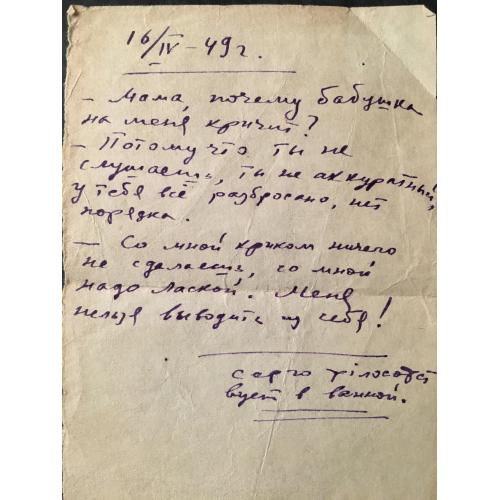 16/IV-49г.
— Мама, почему бабушка
на меня кричит?
— Потому что ты не
слушаешь, ты не аккуратный,
у тебя всё разбросано, нет
порядка.
— Со мной криком ничего
не сделаешь, со мной
надо лаской. Меня
нельзя выводить из себя!
серго філософст
вует в ванной.